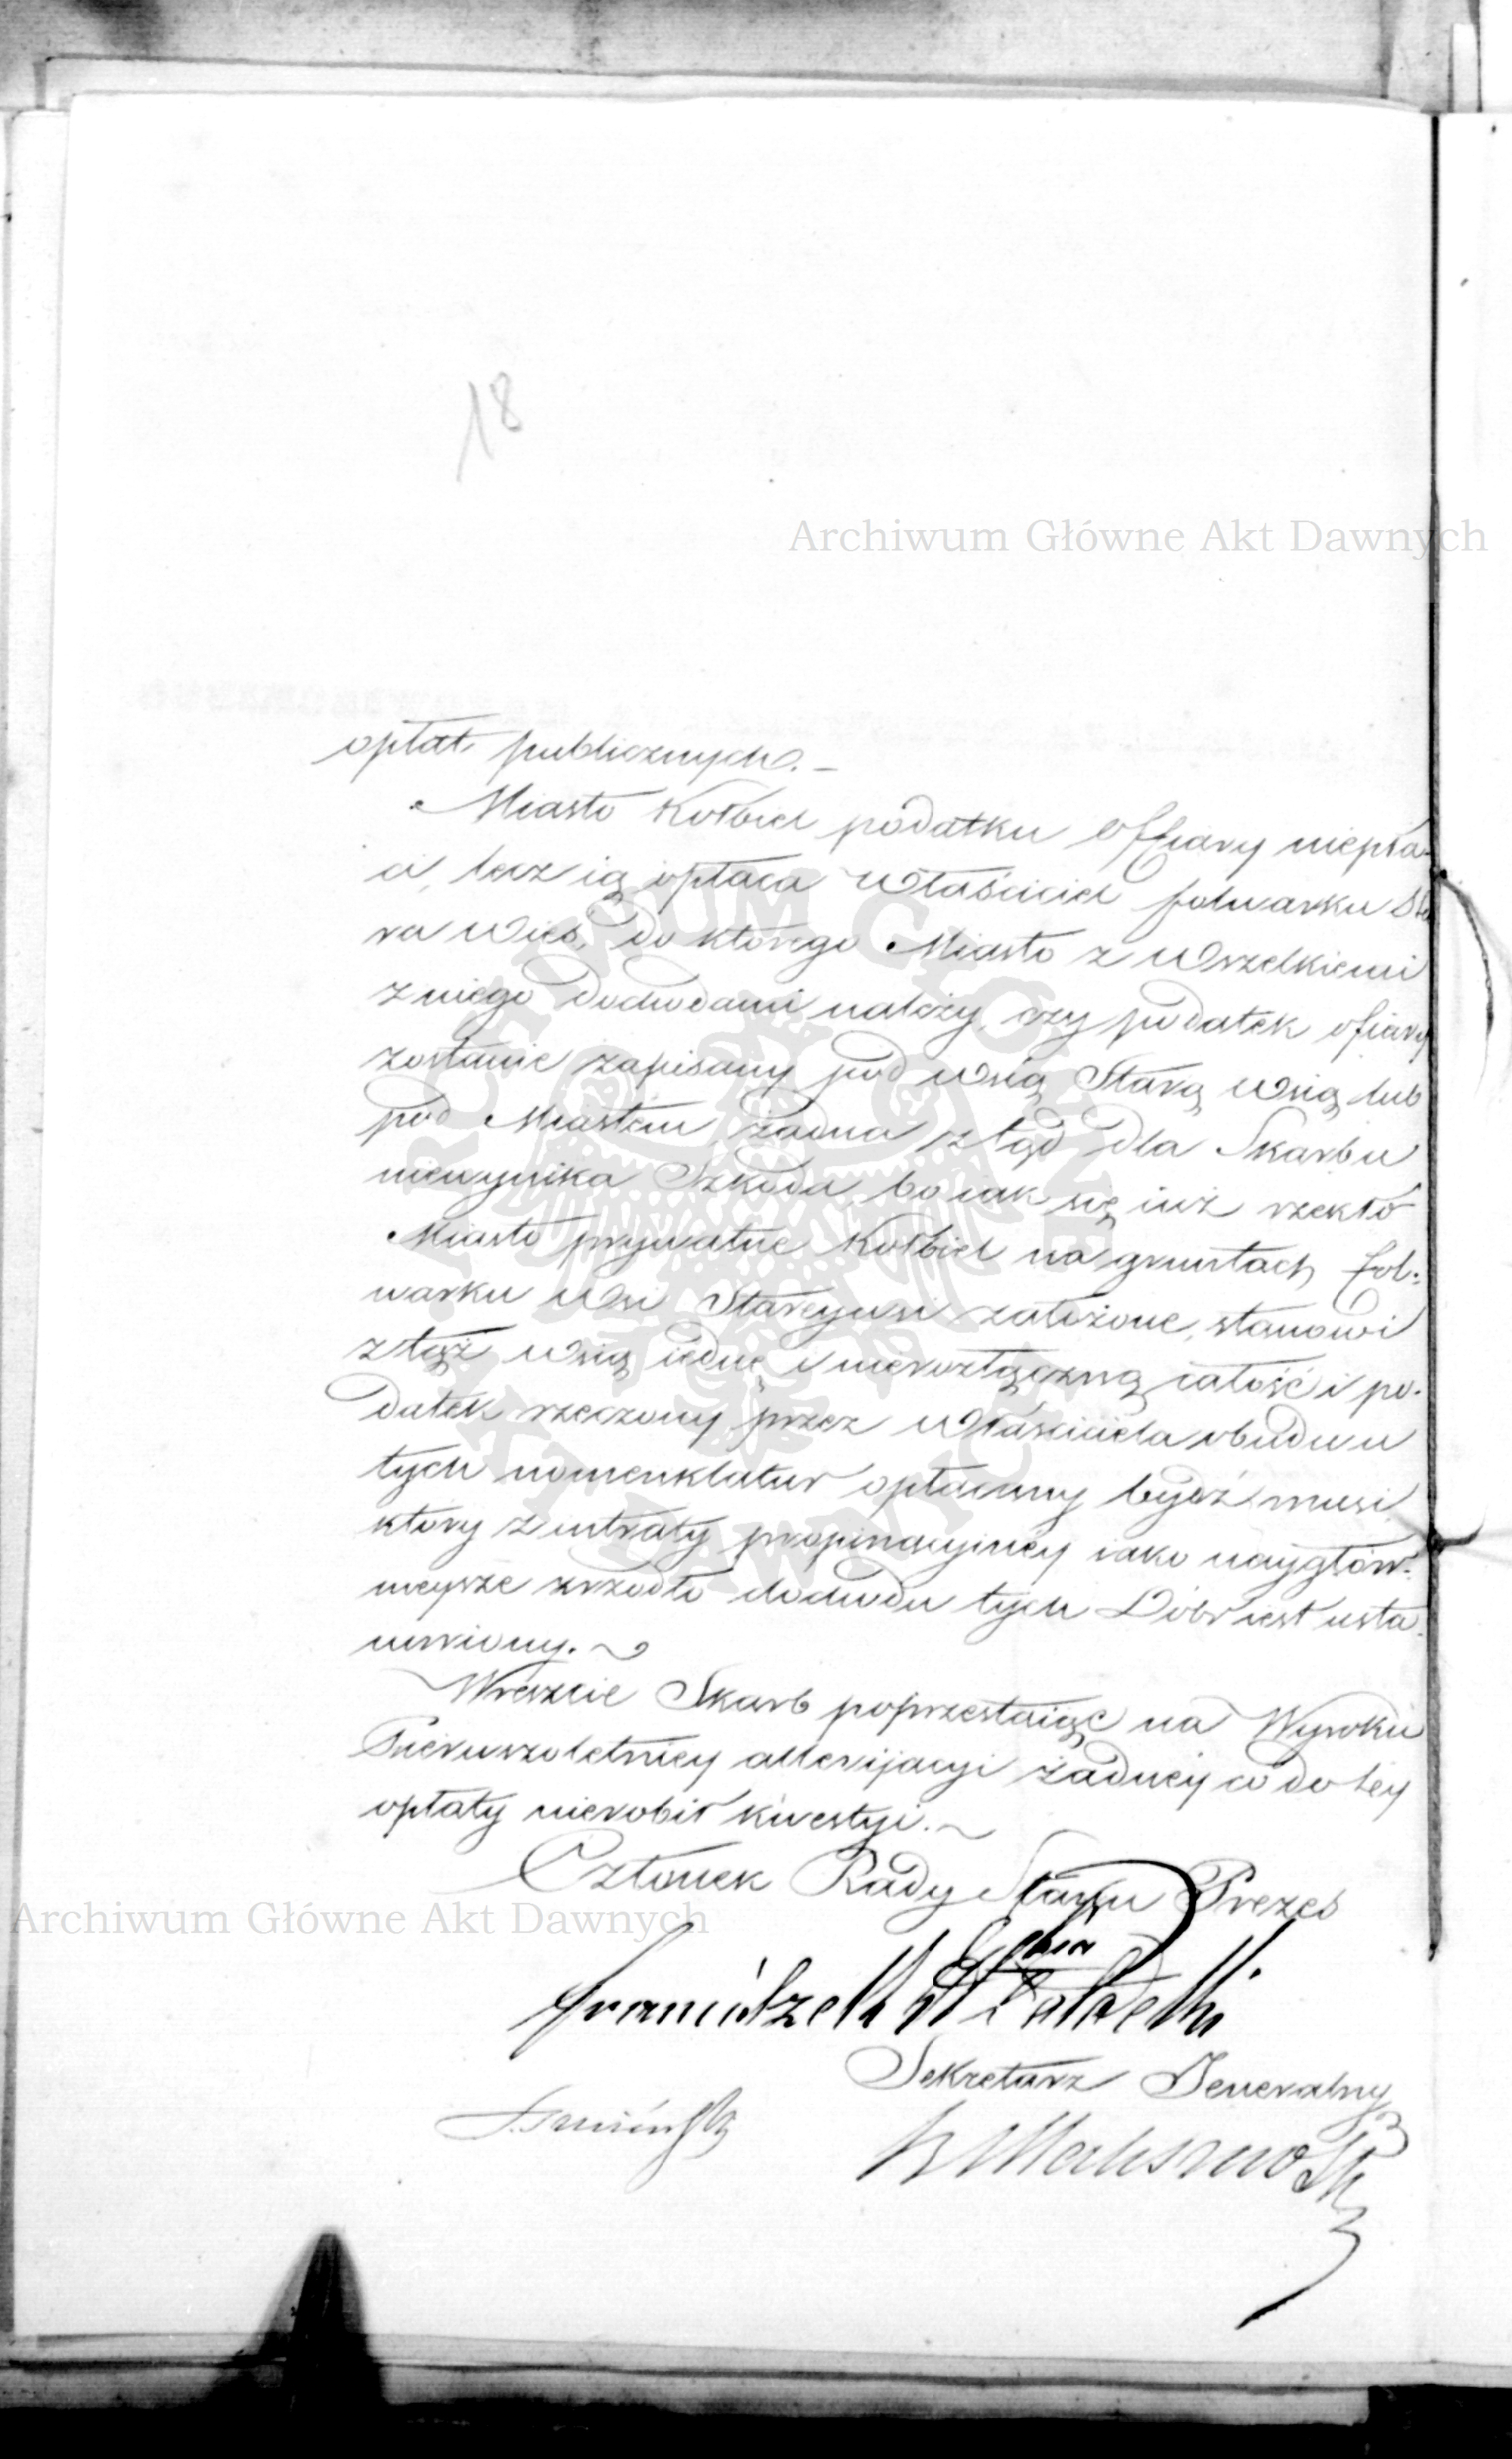 18
Archiwum Główne Akt Dawnych
opłat publicznych. –
Miasto Kołbiel podatku Offiary niepła-
ci, lecz ią opłaca Właściciel folwarku Sta
ra Wieś, do którego Miasto z Wszelkiemi
z niego dochodami należy, czy podatek ofiary
zostanie zapisany pod wsią Starą Wsią lub
pod Miastem, żadna ztąd dla Skarbu
niewynika Szkoda, bo iak się iuż rzekło
Miasto prywatne Kołbiel na gruntach fol-
warku Wsi Stareywsi założone, stanowi
z tąż Wsią iednę i nierozłączną całość i po-
datek rzeczony przez Właściciela obudwu
tych nomenklatur opłacany bydź musi,
który z intraty propinacyiney iako naygłów-
nieysze zrzodło dochodu tych Dóbr iest usta-
nowiony.
Wreszcie Skarb poprzestaiąc na Wyroku
Pierwszoletniey allewijacyi żadney co do tey
opłaty nierobił kwestyi.
Członek Rady Stanu Prezes
Archiwum Główne Akt Dawnych
Franciszek
Sekretarz Jeneralny
ARCHIWUM GŁÓWNE
AKT DAWNYCH